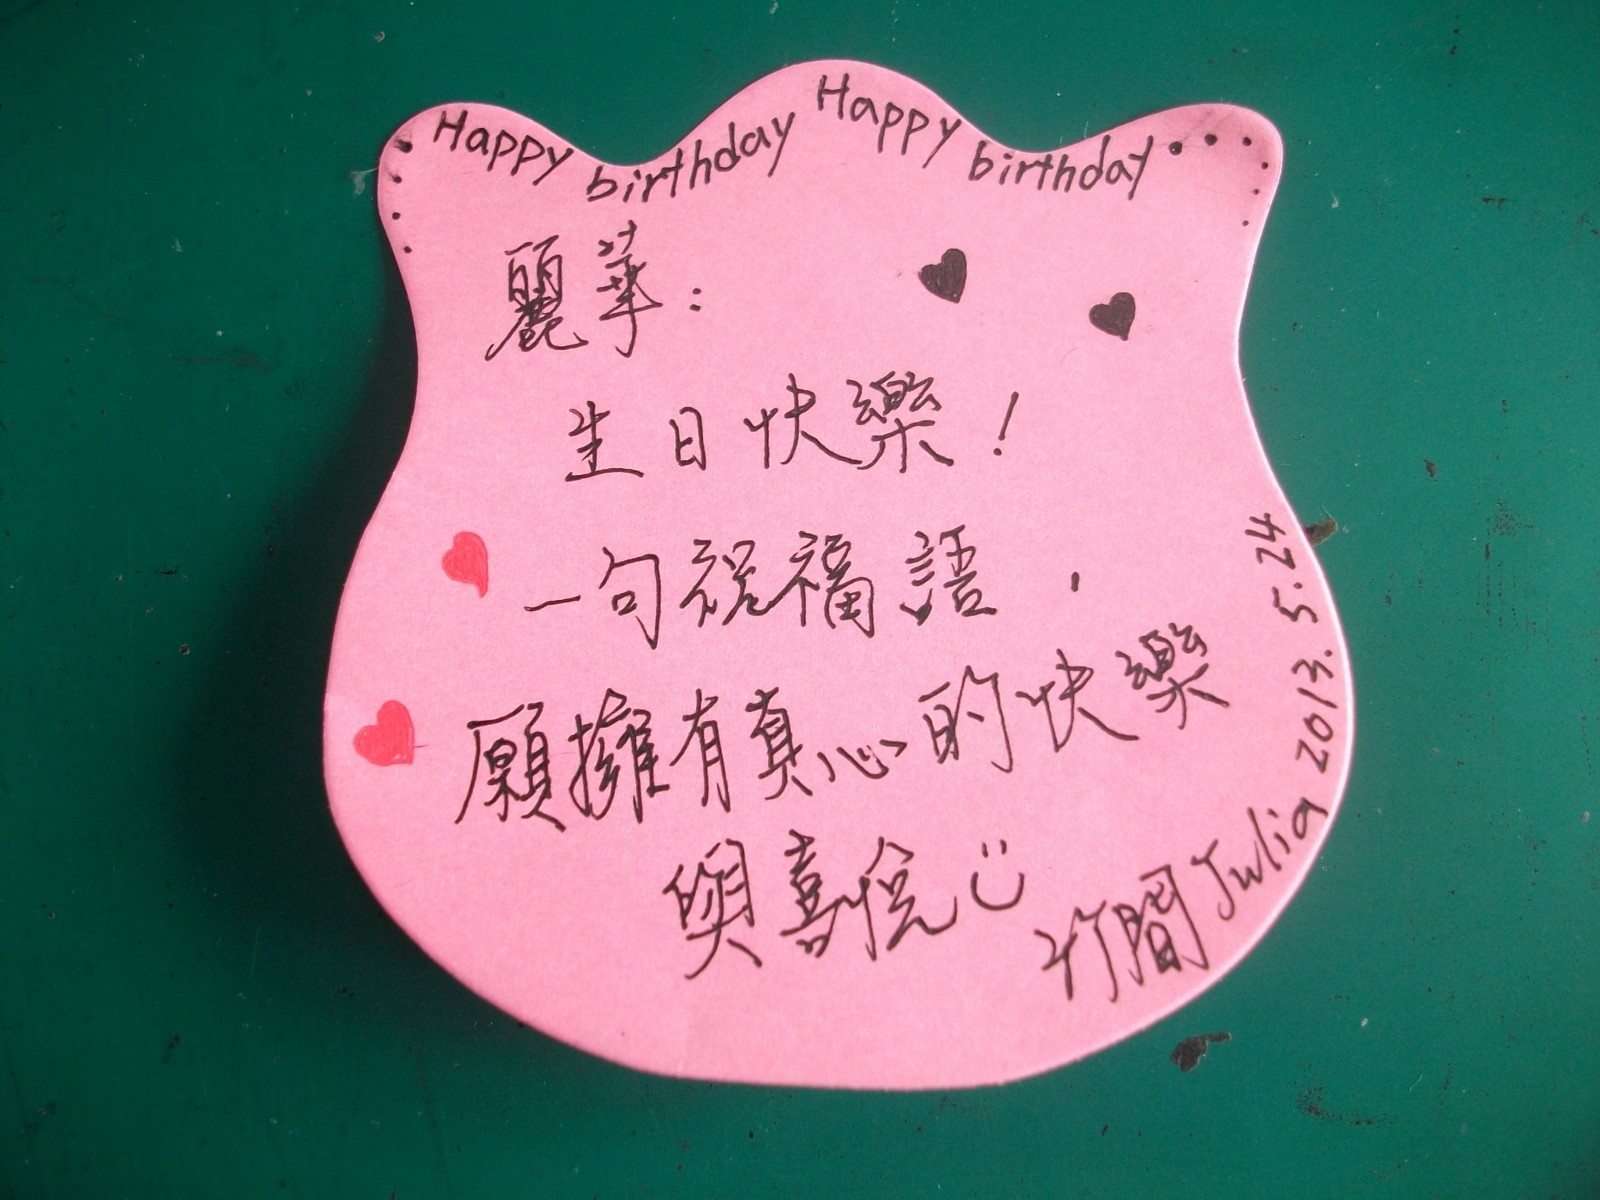 Happy birthday Happy birthday
麗華:
生日快樂!
一句祝福語,
願擁有真心的快樂
與喜悅
竹間 Julia 2013.5.24